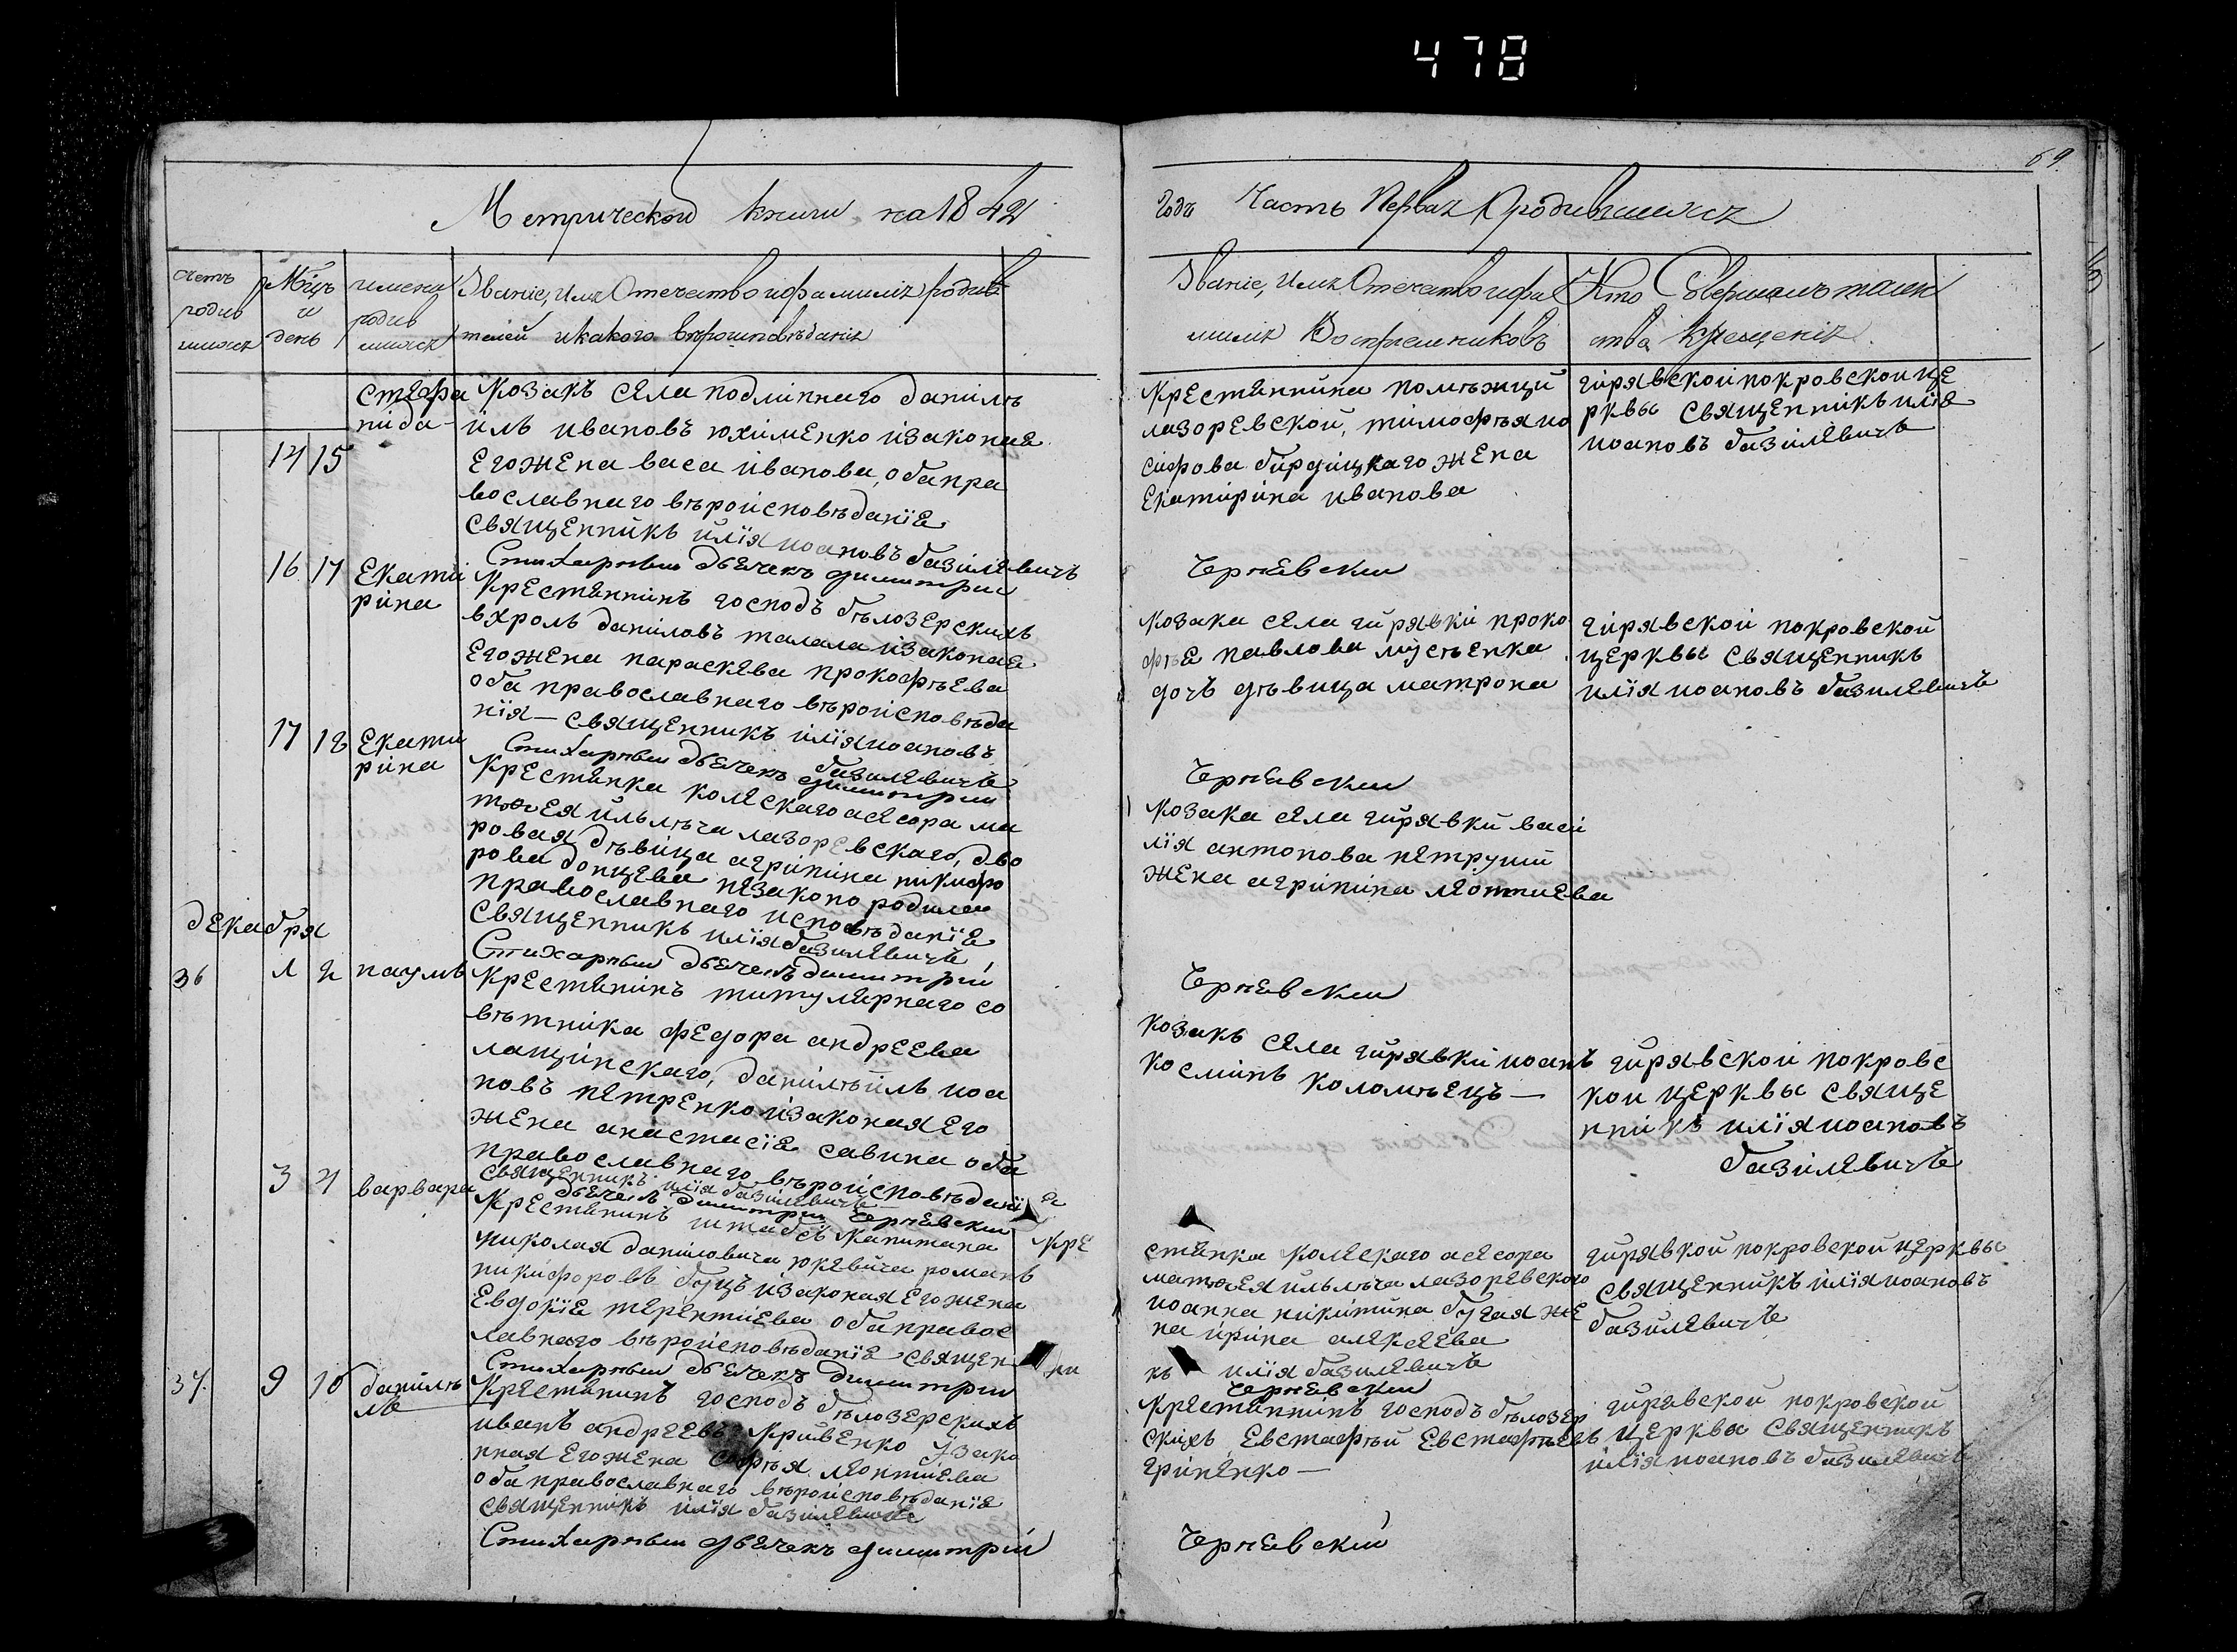 478
69
Метрической книги на 1842
годъ Часть Первая О родившихся
счетъ родив шихся
Мцъ и день
имена родив шихся
Званіе, Имя Отечество и фамилія родив
телей и какого вѣроисповѣданія
Званіе, Имя Отечество и фа
милія Воспрѣемниковъ
Кто Совершалъ таин
ства крещенія
14 15
стефа
нида
козакъ села подлипнаго данилъ
илъ ивановъ юхименко изаконая
егожена васа иванова, оба пра
вославнаго вѣроисповѣданїе
священникъ илїя иоановъ базилевичъ
Стихарный дьячекъ димитрій
крестянина помѣжицй
лазоревской, тимофѣя ио
сифова бирдицкаго жена
екатирина иванова
Чернѣвскій
гирявской покровской це
рквы священникъ илїя
иоановъ базилевичъ
16 17
екати
рина
крестянинъ господъ бѣлозерскихъ
вхролъ даниловъ талала изаконая
егожена параскева прокофѣева
оба православнаго вѣроисповѣда
нїя — священникъ илїя иоановъ
базилевичъ
Стихарный дьячекъ димитрій
козака села гирявки проко
фѣя павлова мусѣенка
дочъ дѣвица матрона
Чернѣвскій
гирявской покровской
церквы священникъ
илїя иоановъ базилевичъ
17 18
екати
рина
крестянка колескаго асесора ма
тфея ильича лазоревскаго, дво
ровая дѣвица агрипина никифо
рова донцева незаконо родила
православнаго исповѣданїе
священникъ илїя базилевичъ
Стихарный дьячекъ димитрій
козака села гирявки васи
лїя антонова петруши
жена агрипина леонтиева
Чернѣвскій
декабря
36
1 2
наумъ
крестянинъ титулярнаго со
вѣтника федора андреева
лащинскаго, данилъ илъ иоа
новъ петренко изаконая его
жена анастасїя савина оба
православнаго вѣроисповѣданї е
священникъ илїя базилевичъ
дьячекъ димитрій Чернѣвскій
козакъ села гирявки иоанъ
косминъ коломѣецъ —
гирявской покровс
кои церквы свяще
нникъ илїя иоановъ
базилевичъ
3 4
варвара
крестянинъ штабсъ капитана
николая даниловича юкевича романъ
никифоровъ буцъ изаконая егожена
евдокїя терентиева оба правос
лавнаго вѣроисповѣданїе священ ни
Стихарный дьячекъ димитрій
кре
стянка колескаго асесора
матфея ильича лазоревского
иоанна никитина бугая же
на ирина алексеева
къ илїя базилевичъ
Чернѣвскій
гирявкой покровской церквы
священникъ илїя иоановъ
базилевичъ
37.
9 10
данилъ
илъ
крестянинъ господъ бѣлозерскихъ
иванъ андреевъ кривенко узако
нная егожена софѣя леонтиева
оба православнаго вѣроисповѣданїе
священникъ илїя базилевичъ
Стихарный дьячекъ димитрій
крестянинъ господъ бѣлозер
скихъ евстафѣй евстафѣевъ
гриненко —
Чернѣвскій
гирявской покровской
церквы священникъ
илїя иоановъ базилевичъ